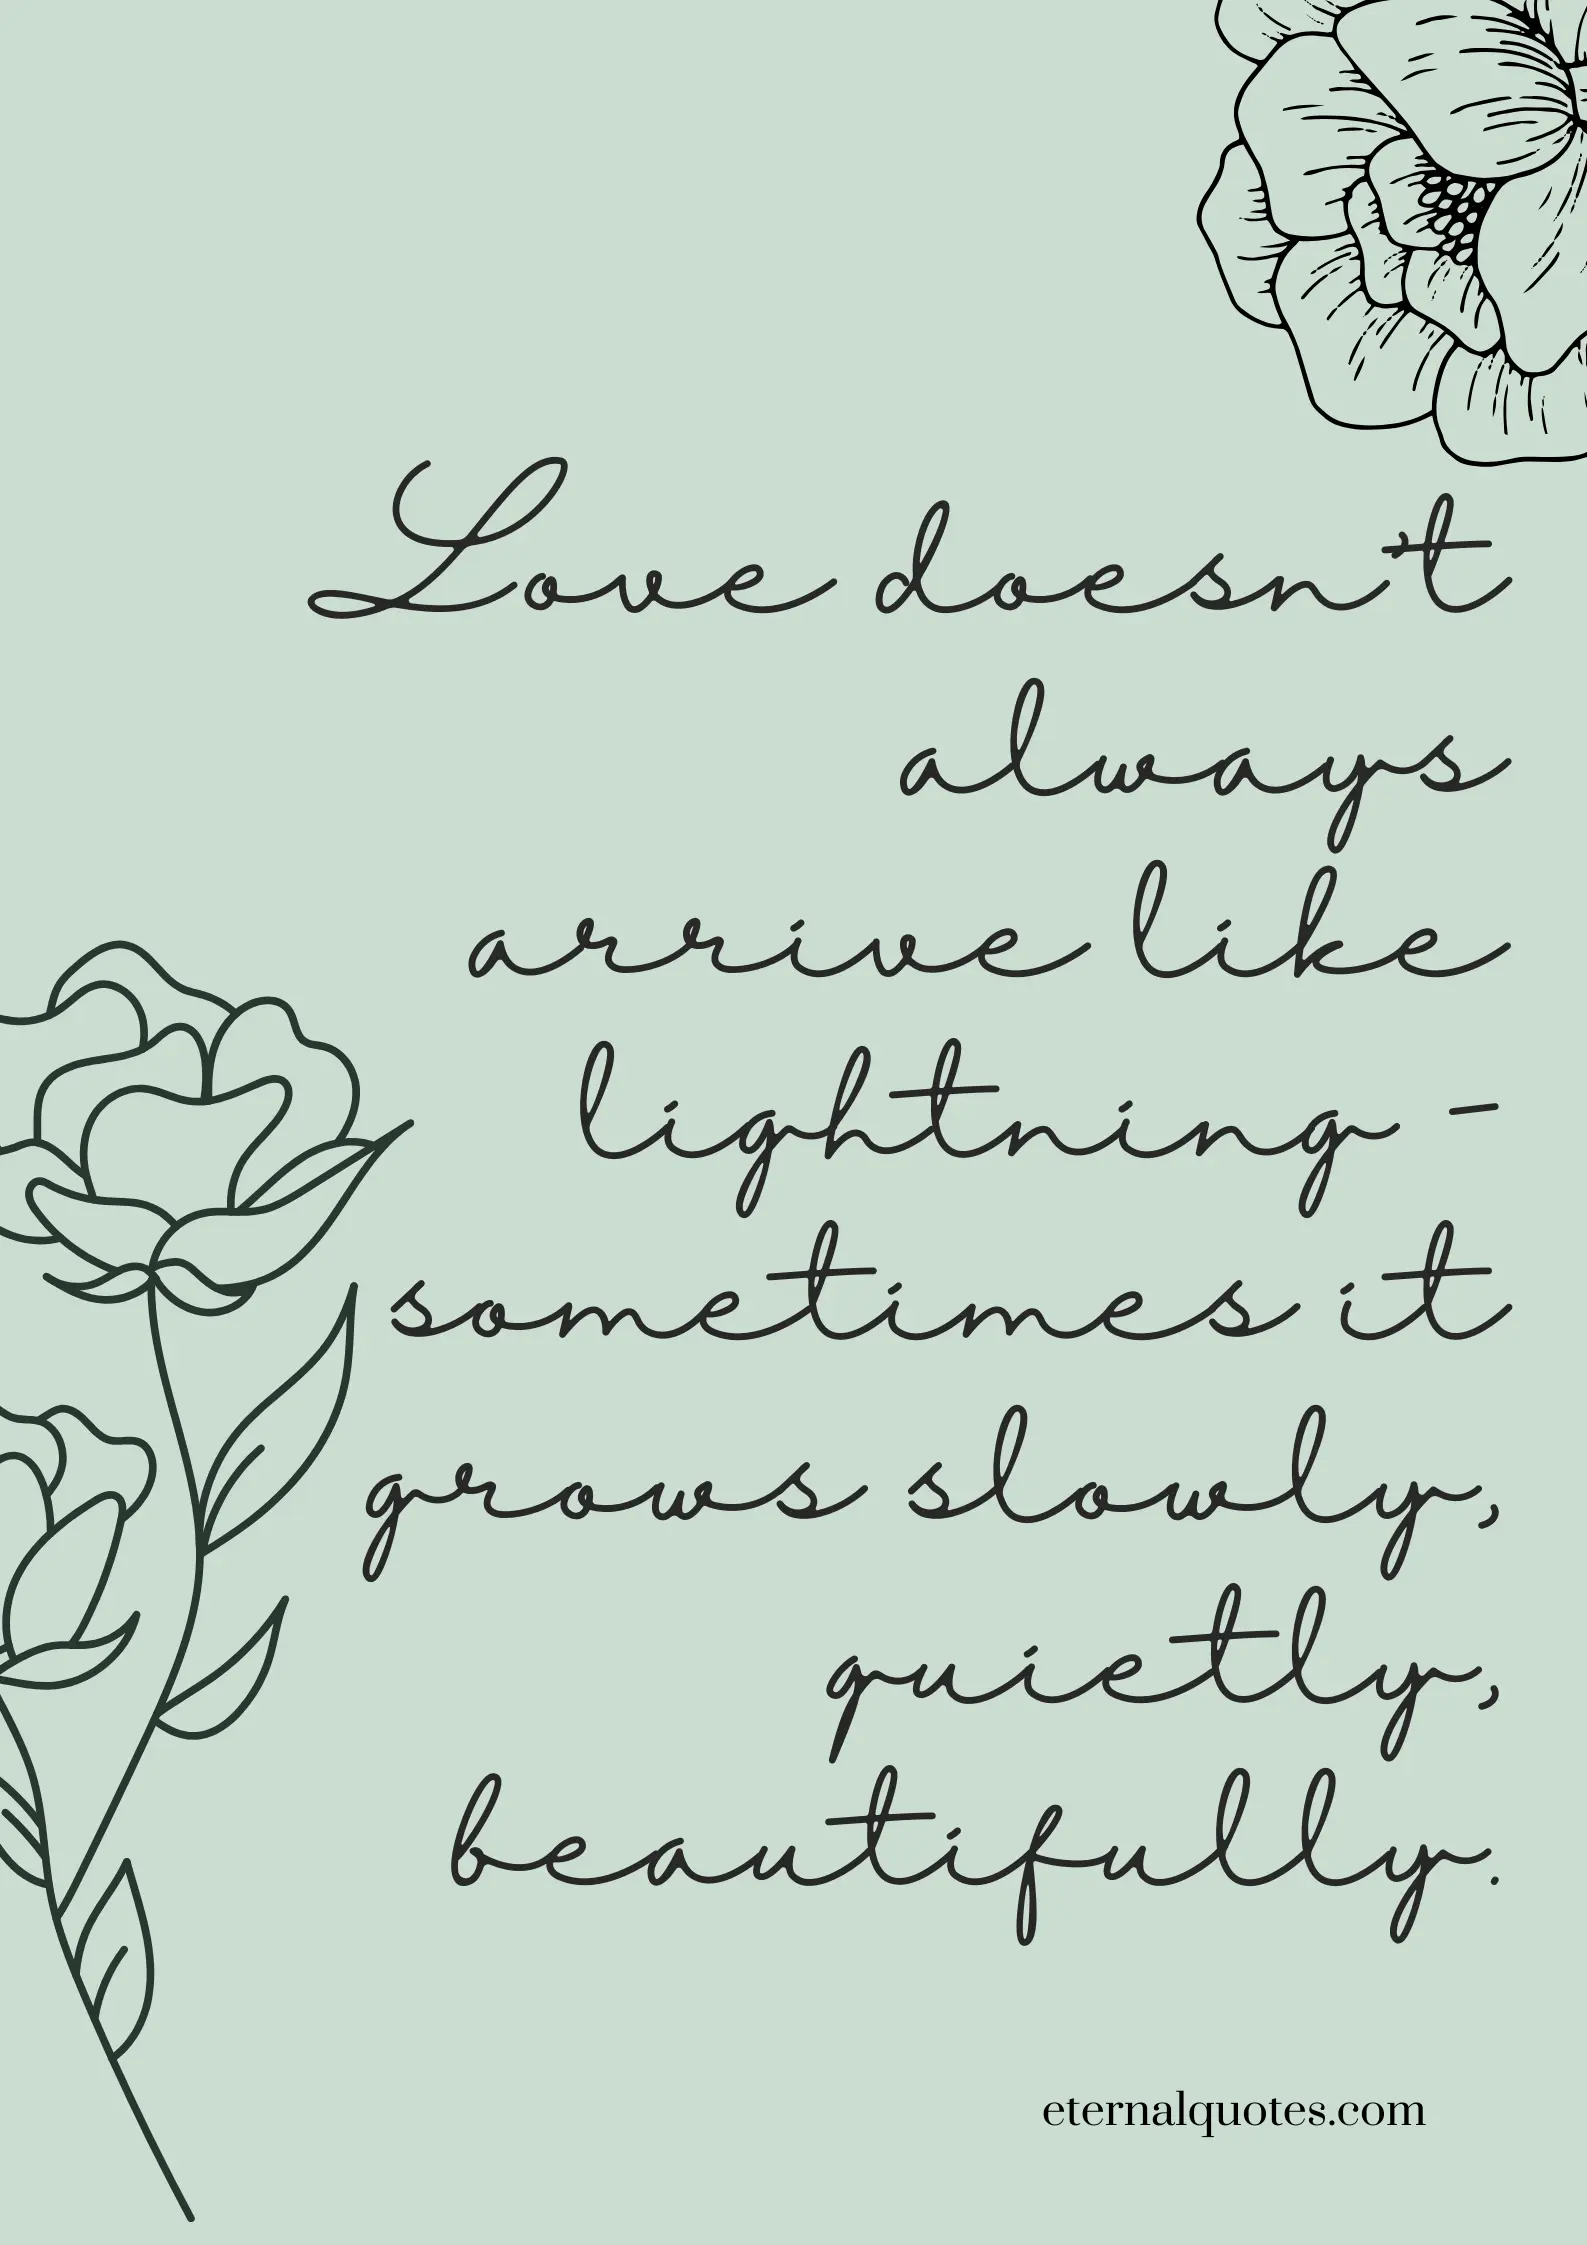 Love doesn't
always
arrive like
lightning -
sometimes it
grows slowly,
quietly,
beautifully.
eternalquotes.com